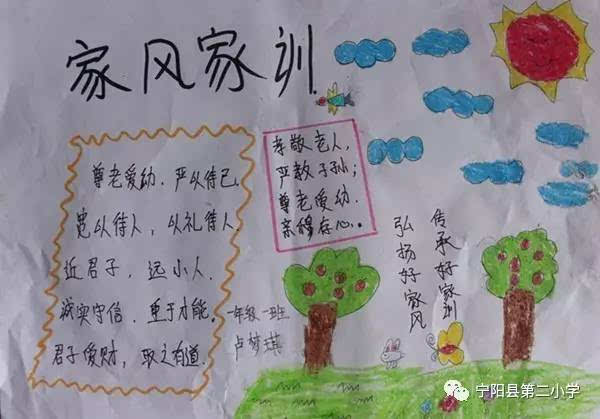 家风家训
尊老爱幼．严以待己
宽以待人，以礼待人
近君子，远小人．
诚实守信．重于才能．
君子爱财，取之有道．
孝敬老人，
严教子孙；
尊老爱幼．
亲穆存心。
传承好家训
弘扬好家风
一年级一班
卢梦琪
宁阳县第二小学